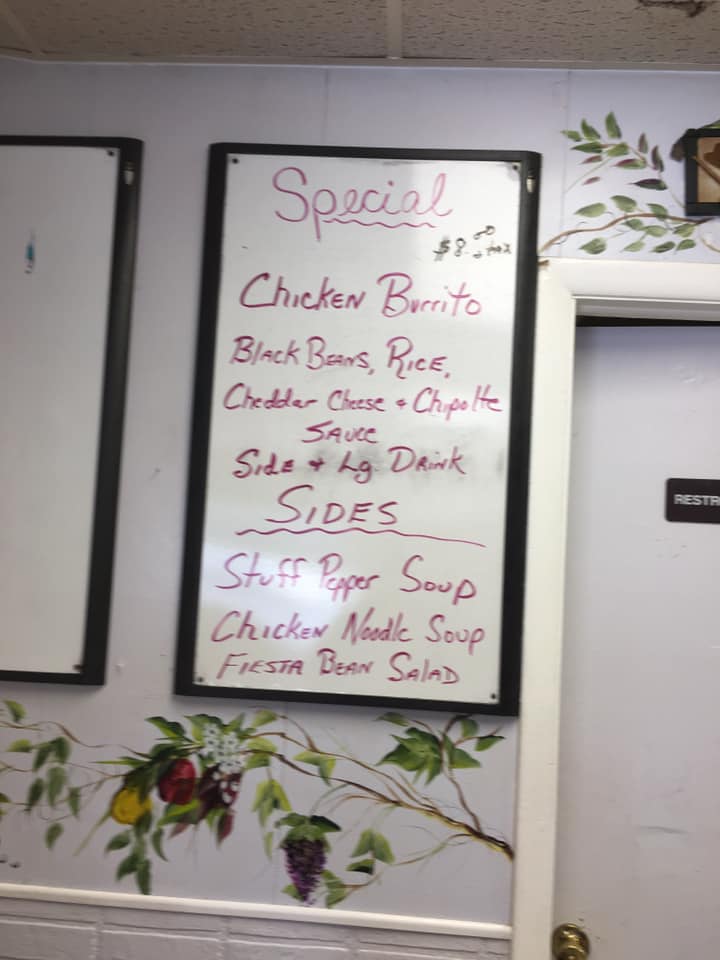 Special
$8.00 + tax
Chicken Burrito
Black Beans, Rice,
Cheddar Cheese + Chipotle
Sauce
Side + Lg. Drink
SIDES
Stuff Pepper Soup
Chicken Noodle Soup
Fiesta Bean Salad
RESTR